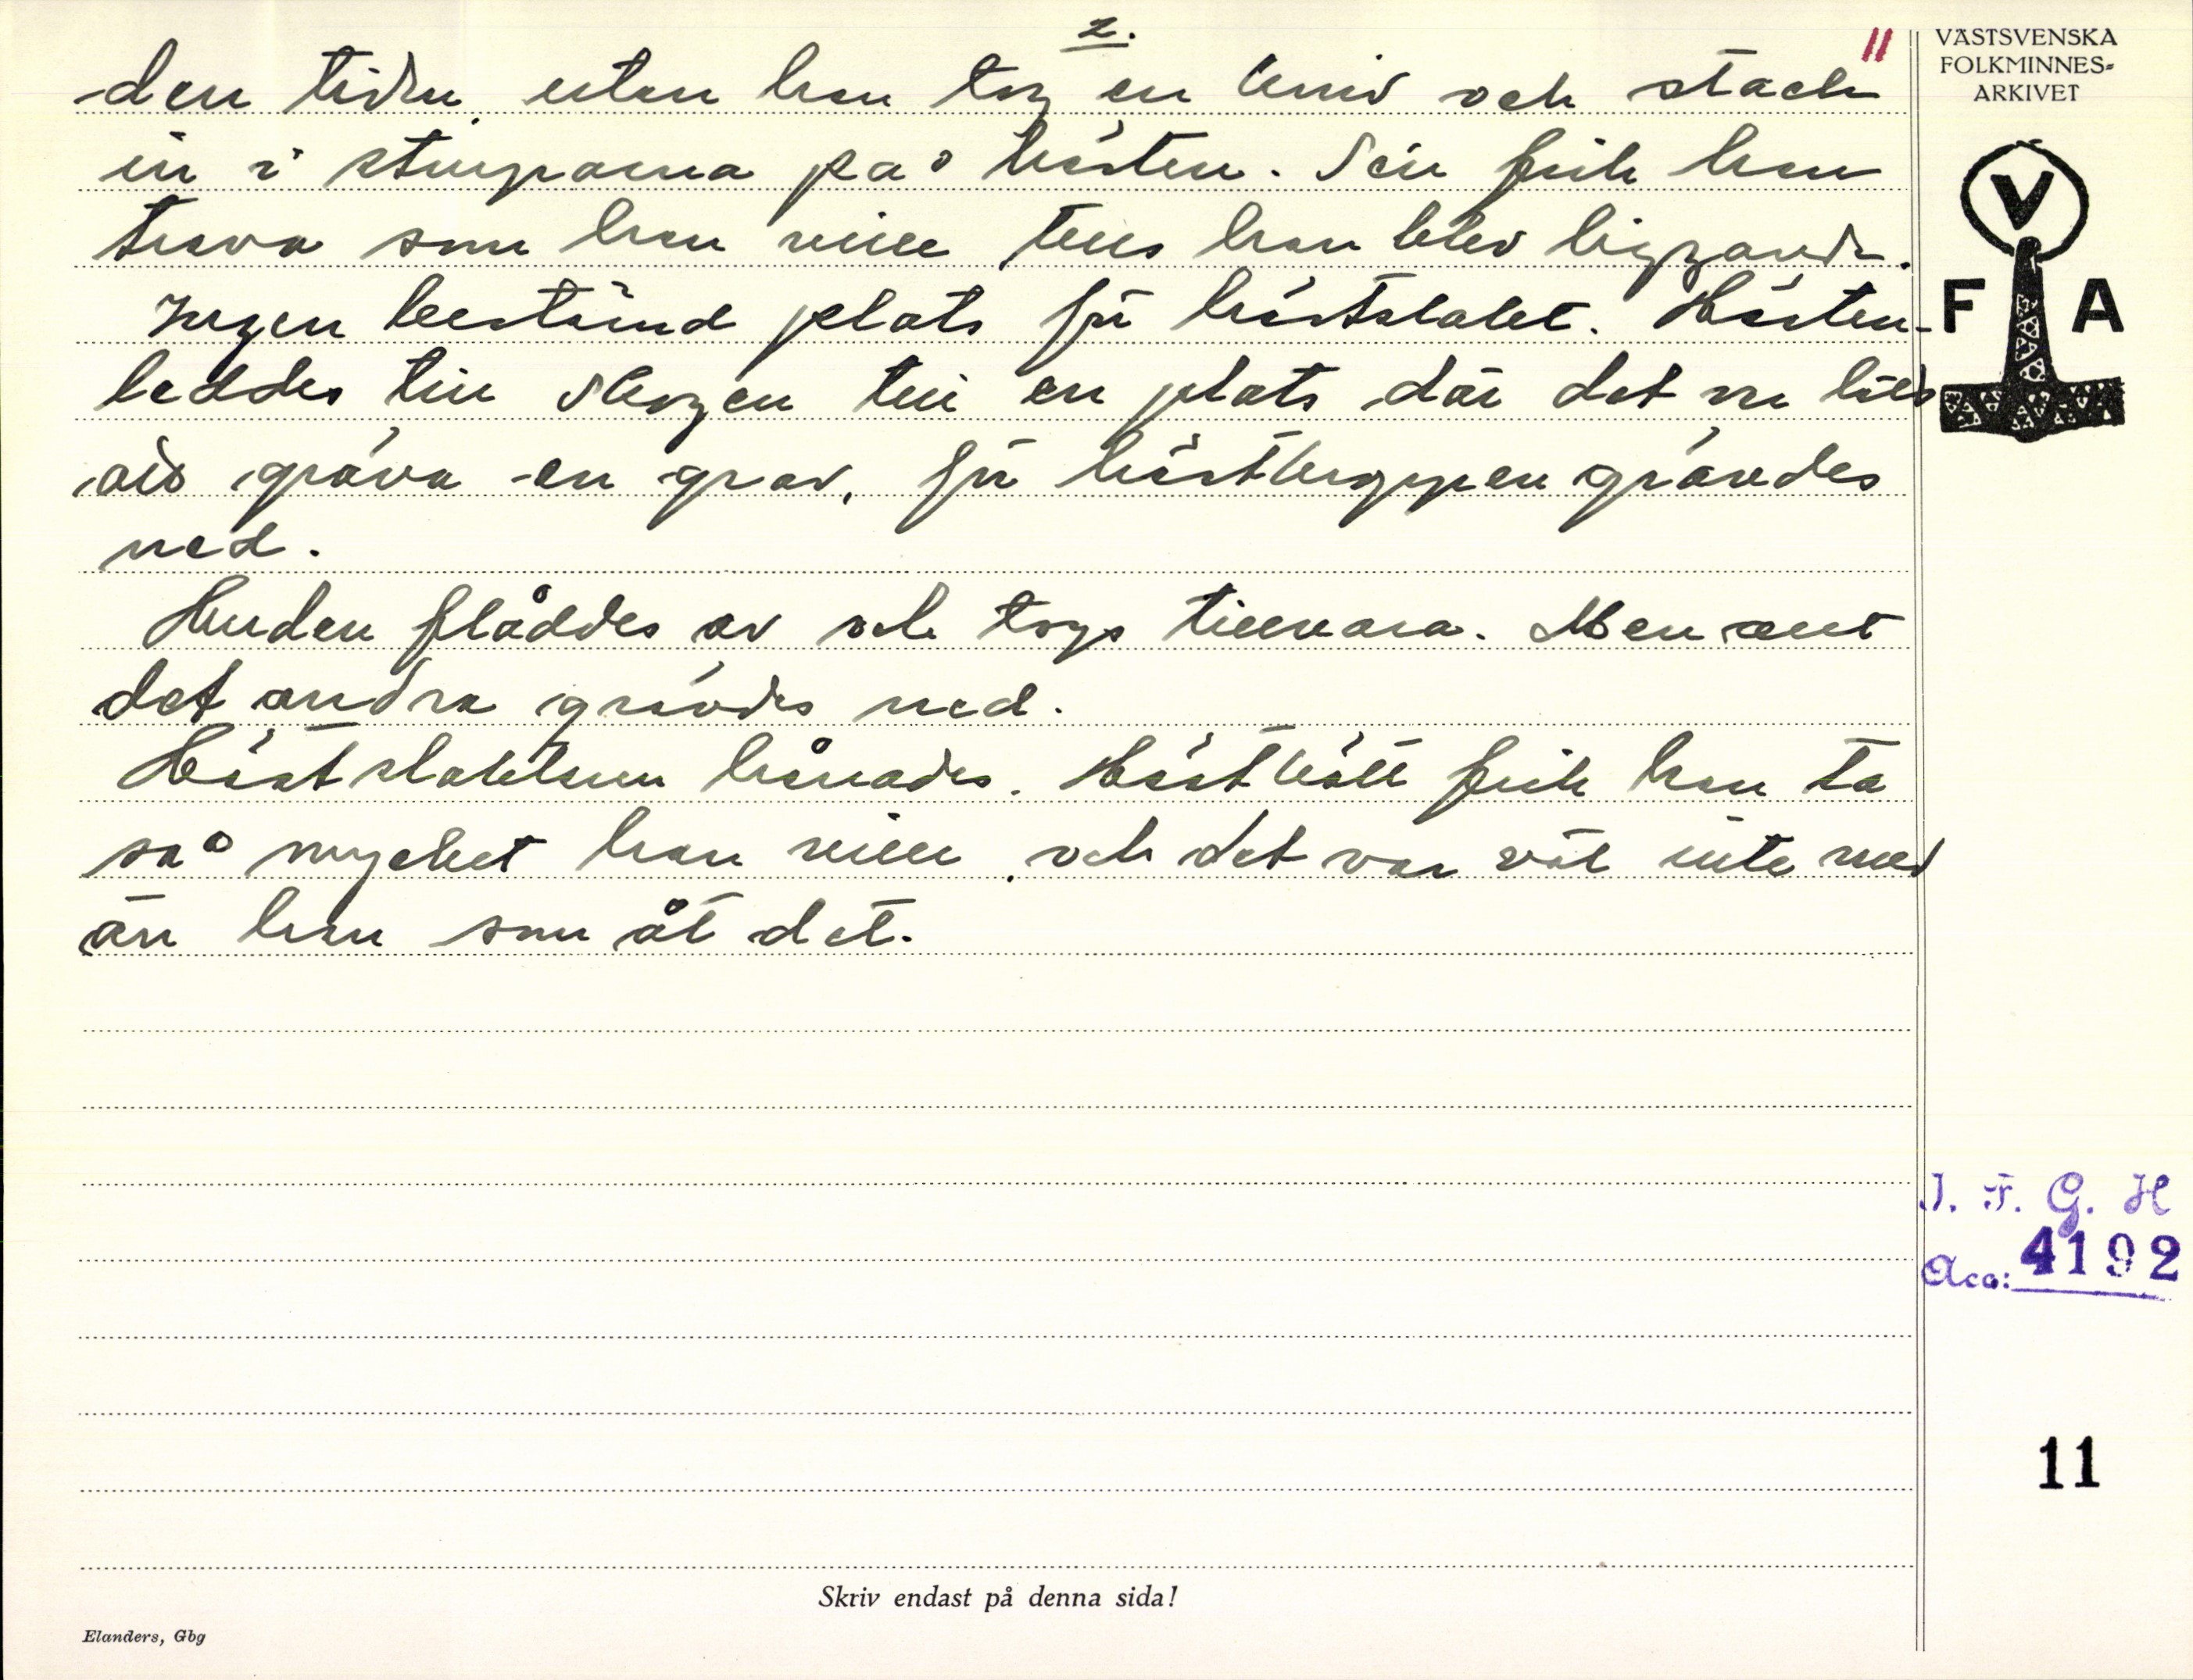 2.
11
den tiden utan han tog en kniv och stack
in i struparna på hästen. Sen fick han
trava som han ville tills han blev liggande.
Ingen bestämd plats för hästslakt. Hästen
leddes till skogen till en plats där det var
att gräva en grav, för hästkroppen grävdes
ned.
Huden flåddes av och togs tillvara. Men allt
det andra grävdes ned.
Hästslaktaren hånades. Hästkött fick han ta
så mycket han ville, och det var väl inte mer
än han som åt det.
VÄSTSVENSKA
FOLKMINNES-
ARKIVET
V
F A
I. F. G. H
Acc: 4192
11
Skriv endast på denna sida!
Elanders, Gbg